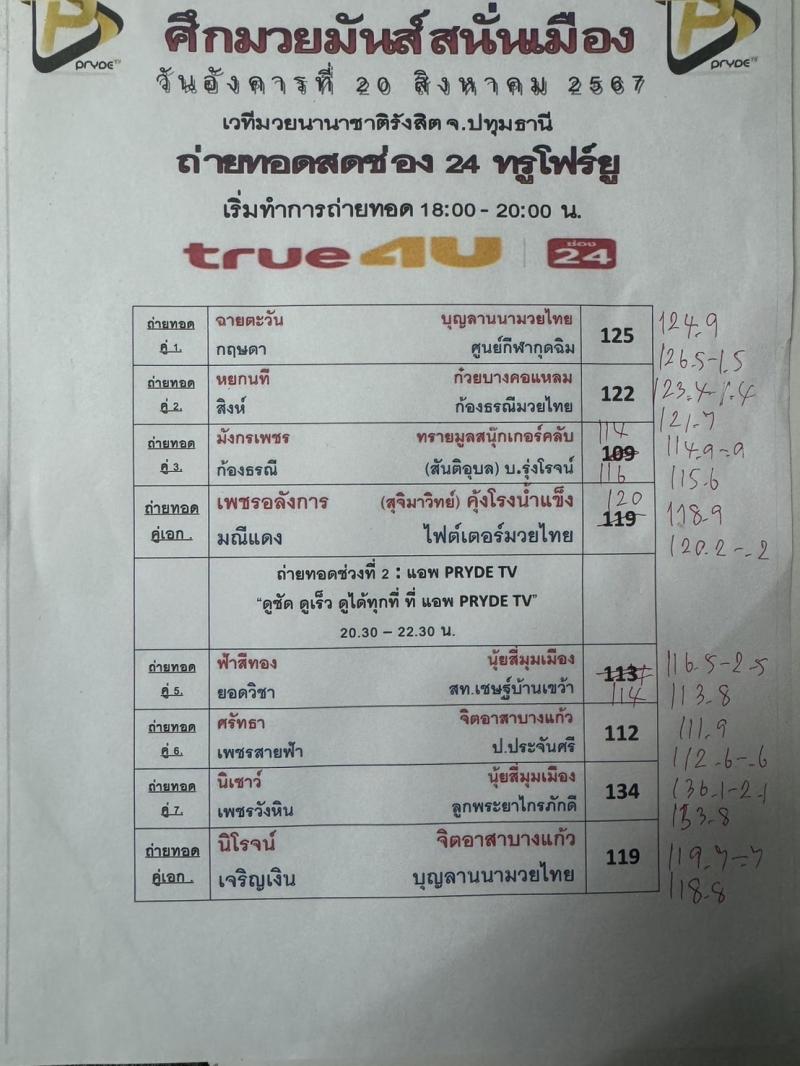 PRYDE TV
PRYDE TV
ศึกมวยมันส์สนั่นเมือง
วันอังคารที่ 20 สิงหาคม 2567
เวทีมวยนานาชาติรังสิต จ.ปทุมธานี
ถ่ายทอดสดช่อง 24 ทรูโฟร์ยู
เริ่มทำการถ่ายทอด 18:00 - 20:00 น.
true4U ช่อง 24
ถ่ายทอด ฉายตะวัน บุญลานนามวยไทย 125 124.9
คู่ 1. กฤษดา ศูนย์กีฬากุดฉิม 126.5-1.5
ถ่ายทอด หยกนที ก๋วยบางคอแหลม 122 123.4-1.4
คู่ 2. สิงห์ ก้องธรณีมวยไทย 121.7
ถ่ายทอด มังกรเพชร ทรายมูลสนุ๊กเกอร์คลับ 114 109 114.9-.9
คู่ 3. ก้องธรณี (สันติอุบล) บ.รุ่งโรจน์ 116 115.6
ถ่ายทอด เพชรอลังการ (สุจิมาวิทย์) คุ้งโรงน้ำแข็ง 120 119 118.9
คู่เอก . มณีแดง ไฟต์เตอร์มวยไทย 120.2-.2
ถ่ายทอดช่วงที่ 2 : แอพ PRYDE TV
“ดูชัด ดูเร็ว ดูได้ทุกที่ ที่ แอพ PRYDE TV”
20.30 – 22.30 น.
ถ่ายทอด ฟ้าสีทอง นุ้ยสี่มุมเมือง 113 116.5-2.5
คู่ 5. ยอดวิชา สท.เชษฐ์บ้านเขว้า 114 113.8
ถ่ายทอด ศรัทธา จิตอาสาบางแก้ว 112 111.9
คู่ 6. เพชรสายฟ้า ป.ประจันศรี 112.6-.6
ถ่ายทอด นิเชาว์ นุ้ยสี่มุมเมือง 134 136.1-2.1
คู่ 7. เพชรวังหิน ลูกพระยาไกรภักดี 133.8
ถ่ายทอด นิโรจน์ จิตอาสาบางแก้ว 119 119.7-.7
คู่เอก . เจริญเงิน บุญลานนามวยไทย 118.8